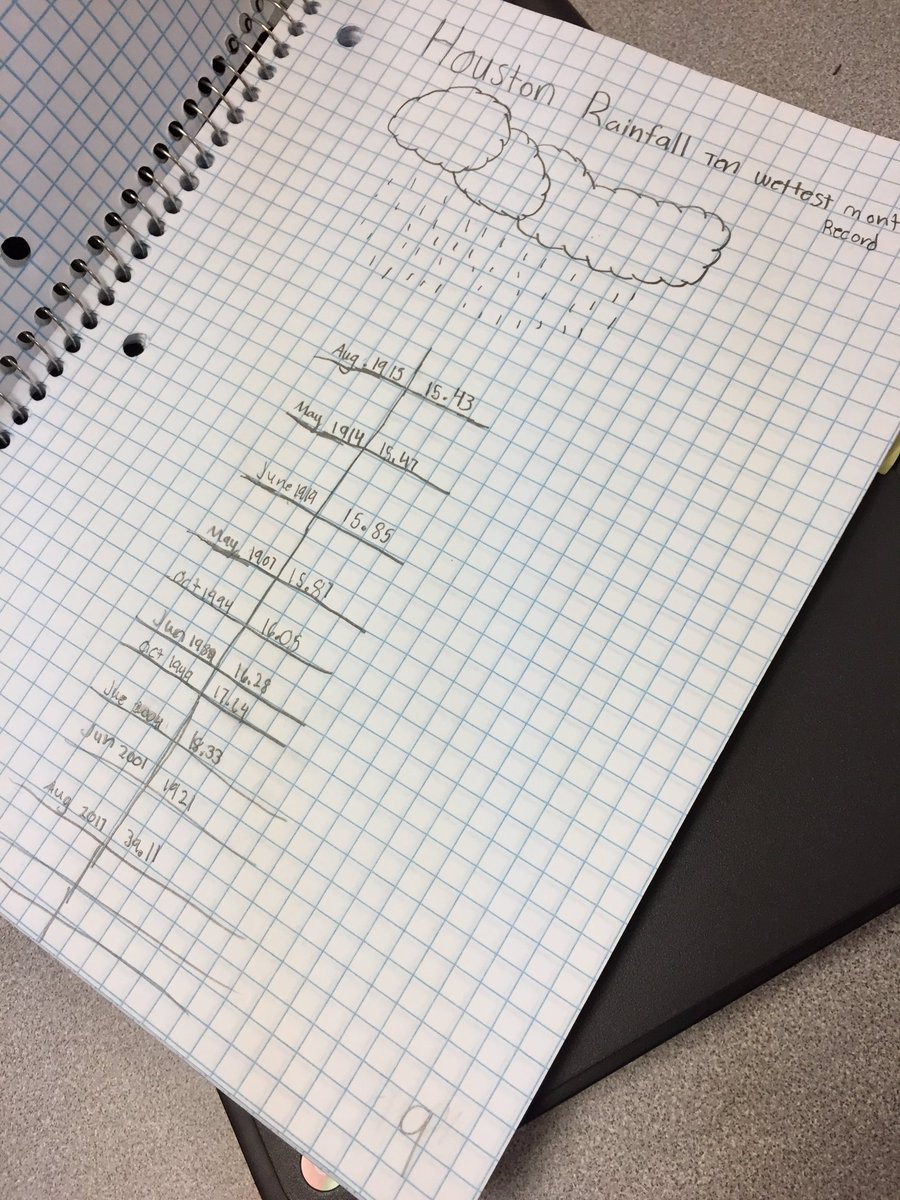 Houston Rainfall Ten wettest mont
Record
Aug. 1915 15.43
May 1914 15.47
June 1919 15.85
May 1907 15.87
Oct 1994 16.05
Jun 1989 16.28
Oct 1949 17.64
2004 18.33
Jun 2001 19.21
Aug 2017 39.11
9